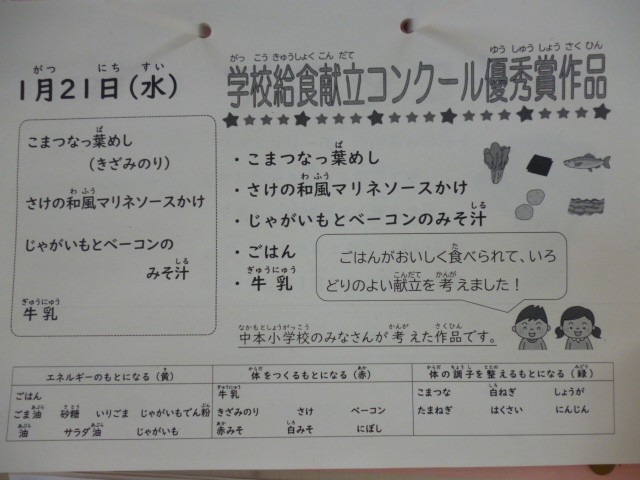 1月21日(水)
学校給食献立コンクール優秀賞作品
こまつなっ葉めし
(きざみのり)
さけの和風マリネソースかけ
じゃがいもとベーコンの
みそ汁
牛乳
・こまつなっ葉めし
・さけの和風マリネソースかけ
・じゃがいもとベーコンのみそ汁
・ごはん
・牛乳
ごはんがおいしく食べられて、いろ
どりのよい献立を考えました！
中本小学校のみなさんが考えた作品です。
エネルギーのもとになる(黄)
ごはん
ごま油 砂糖 いりごま じゃがいもでん粉
油 サラダ油 じゃがいも
体をつくるもとになる(赤)
牛乳
きざみのり さけ ベーコン
赤みそ 白みそ にぼし
体の調子を整えるもとになる(緑)
こまつな 白ねぎ しょうが
たまねぎ はくさい にんじん